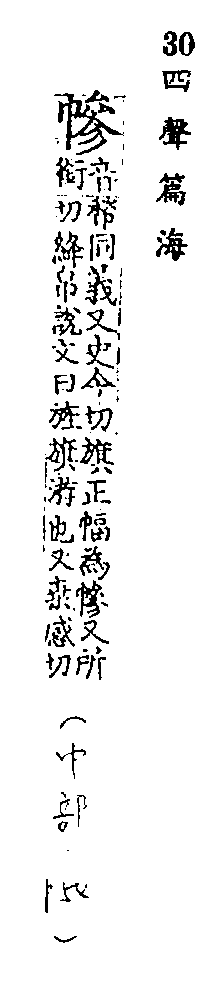 30 四聲篇海
幓 音㡜同義又史今切旗正幅為幓又所
銜切絳帛說文曰旌旗游也又桒感切
(巾部.154)